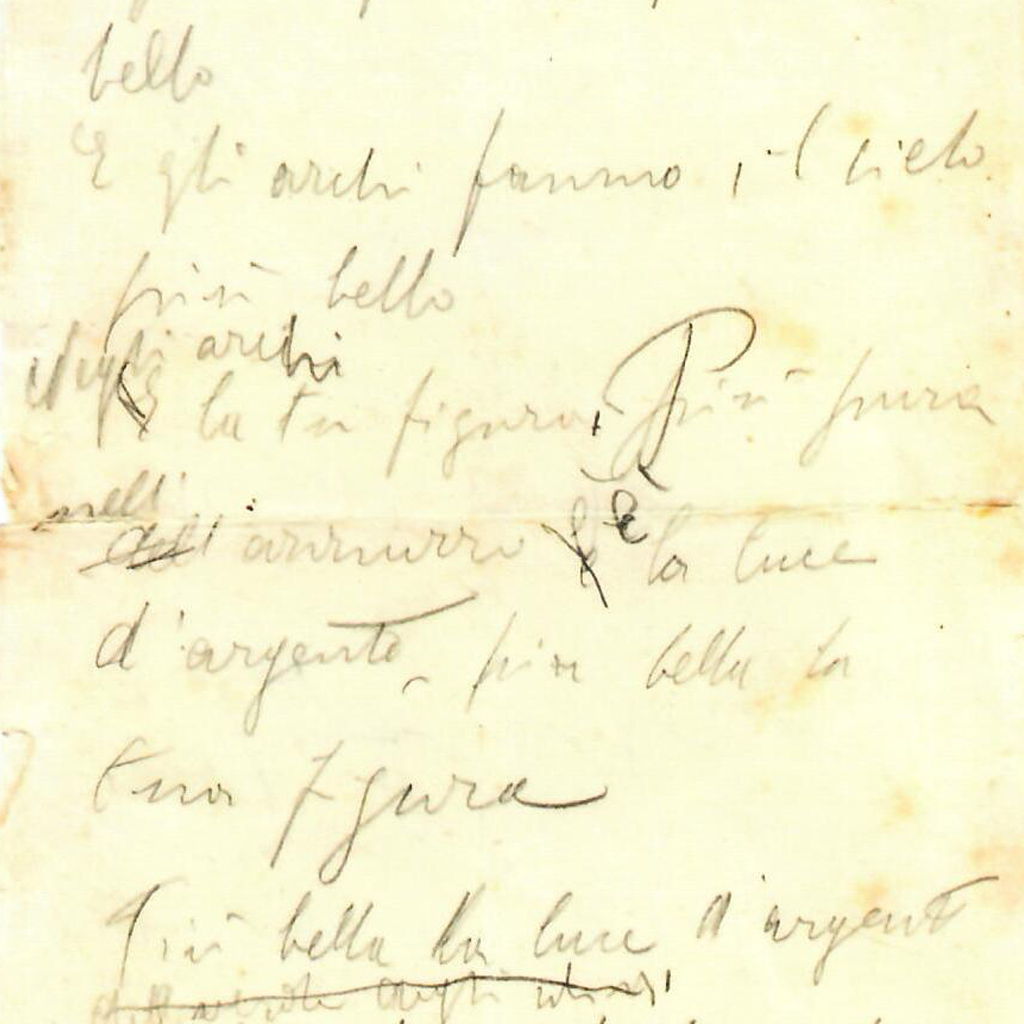 bello
E gli archi fanno, il cielo
più bello
Negli archi
E la tu figura, Più pura
nell'
dell'azzurro E la luce
d'argento, più bella la
tua figura
Più bella la luce d'argento
negli